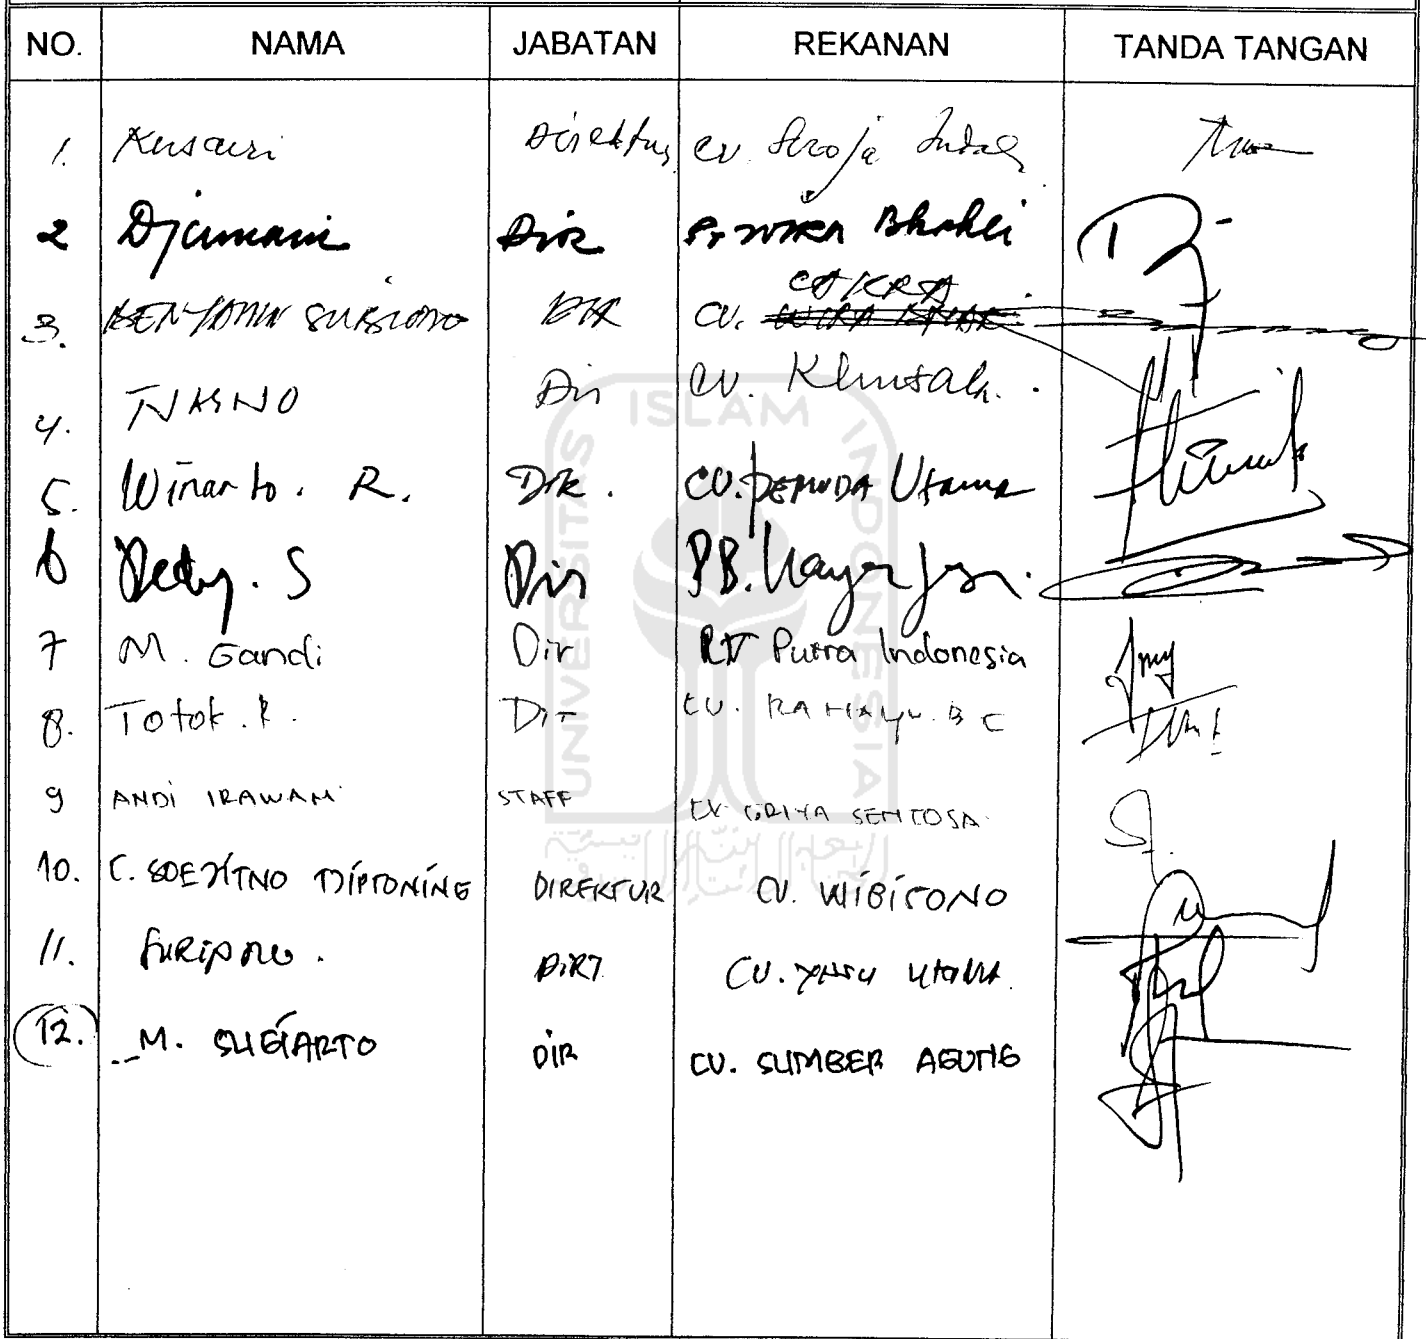 NO. NAMA JABATAN REKANAN TANDA TANGAN
1. Kusairi Direktur CV. Seroja Indah
2 Djumani Dir PT WIRA Bhakti
CAKRA
3. BENYAMIN SUBIONO DIR CV.
4. TJASNO Dir CV. Khusah.
5. Winarto. R. DIR. CV. PEMUDA Utama
6 Dedy. S Dir PB.
7 M. Gandi Dir PT Putra Indonesia
8. Totok. R. Dir CV. RAHAYU. B C
9 ANDI IRAWAN STAFF CV GRIYA SENTOSA
10. C. SOEJITNO TJIPTONING DIREKTUR CV. WIBISONO
11. SURIPNO. DIRT CV. UTAMA
12. M. SUGIARTO DIR CV. SUMBER AGUNG
UNIVERSITAS ISLAM INDONESIA